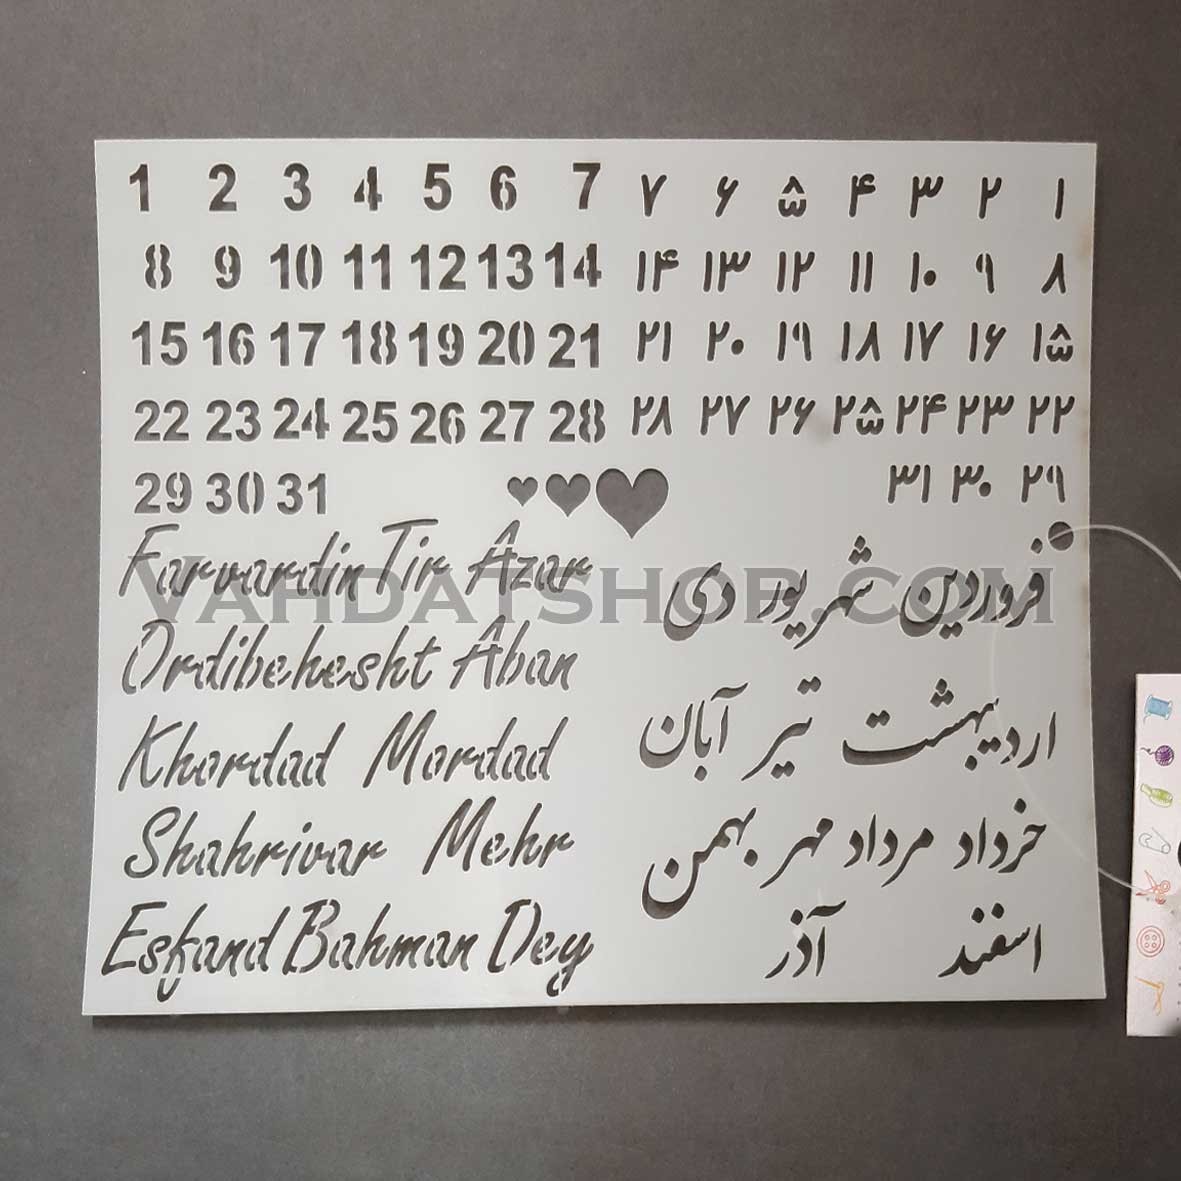 1 2 3 4 5 6 7
8 9 10 11 12 13 14
15 16 17 18 19 20 21
22 23 24 25 26 27 28
29 30 31
۱ ۲ ۳ ۴ ۵ ۶ ۷
۸ ۹ ۱۰ ۱۱ ۱۲ ۱۳ ۱۴
۱۵ ۱۶ ۱۷ ۱۸ ۱۹ ۲۰ ۲۱
۲۲ ۲۳ ۲۴ ۲۵ ۲۶ ۲۷ ۲۸
۲۹ ۳۰ ۳۱
Farvardin Tir Azar
Ordibehesht Aban
Khordad Mordad
Shahrivar Mehr
Esfand Bahman Dey
فروردین شهریور دی
اردیبهشت تیر آبان
خرداد مرداد مهر بهمن
اسفند آذر
VAHDATSHOP.COM